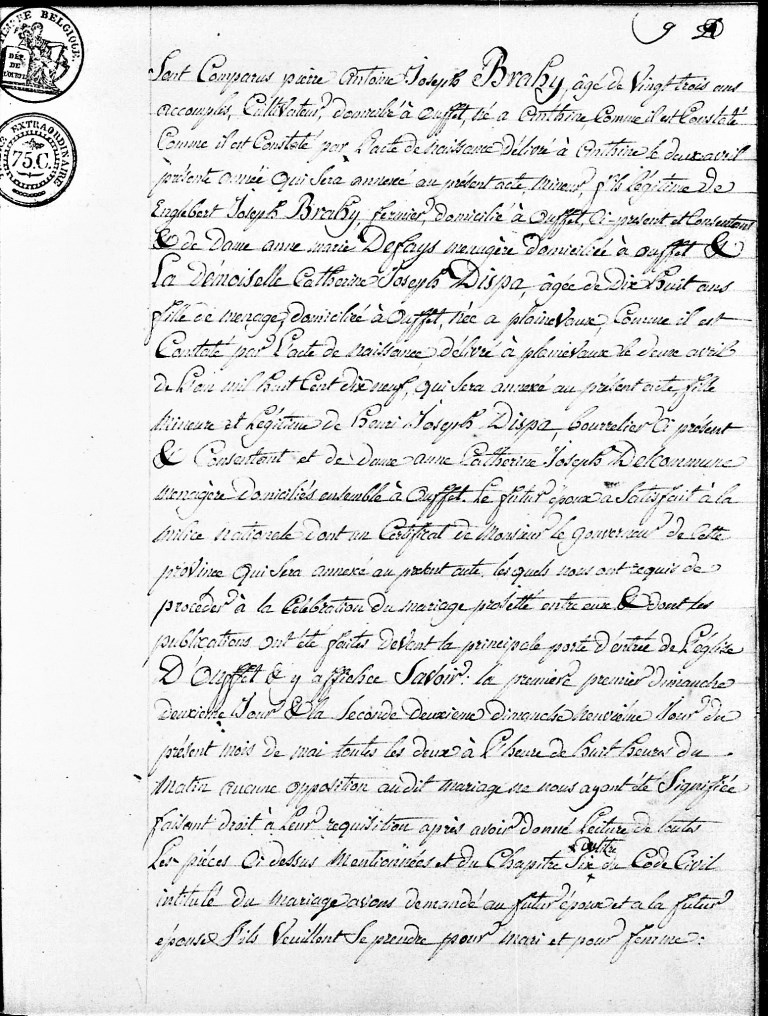 9
BELGIQUE
EXTRAORDINAIRE
75 C.
Sont Comparus pierre antoine Joseph Brahy, âgé de Vingt trois ans
accomplis, Cultivateur, domicilié à ouffet, né a anthine, Comme il est Constaté
Comme il est Constaté par l'acte de naissance délivré à Anthine le deux avril
présent année qui Sera annexé au présent acte, mineur, fils légitime de
Englebert Joseph Brahy fermier, domicilié à Ouffet, Ci-présent et Consentant
& de Dame anne marie Defays menagère domiciliée à ouffet &
La Démoiselle Catherine Joseph Dispa, âgée de Dix huit ans
fille de menage, domiciliée à Ouffet, née a plainevaux, Comme il est
Constaté par l'acte de naissance délivré à plainevaux le deux avril
de l'an mil huit Cent dix neuf, qui Sera annexé au présent acte, fille
mineure et légitime de henri Joseph Dispa, bourrelier Ci présent
& Consentant et de dame anne Catherine Joseph Delcommune
menagère domiciliés ensemble à ouffet. Le futur époux a Satisfait à la
milice nationale dont un Certificat de Monsieur le gouverneur de Cette
province qui Sera annexé au présent acte. lesquels nous ont requis de
procéder à la Célébration du mariage projetté entre eux & dont les
publications ont été faites devant la principale porte d'entrée de l'église
D'Ouffet & y affichée Savoir: la première premier dimanche
deuxieme Jour & la Seconde deuxieme dimanche neuvième Jour du
présent mois de mai toutes les deux à l'heure de huit heures du
matin aucune opposition audit mariage ne nous ayant été Signifiée
faisant droit à leur requisition après avoir donné Lecture de toutes
Les pièces Ci dessus mentionnées et du Chapitre Six du titre du Code Civil
intitulé du mariage avons demandé au futur époux et a la future
épouse S'ils Veuillent Se prendre pour mari et pour femme: